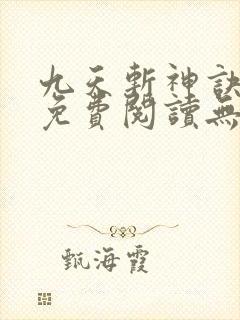 九天斬神訣
免費閱讀無
甄海霞